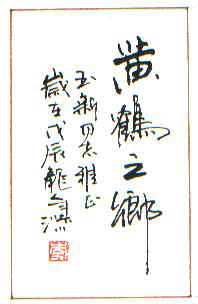 黄鶴之鄉
玉新同志雅正
歲在戊辰龍